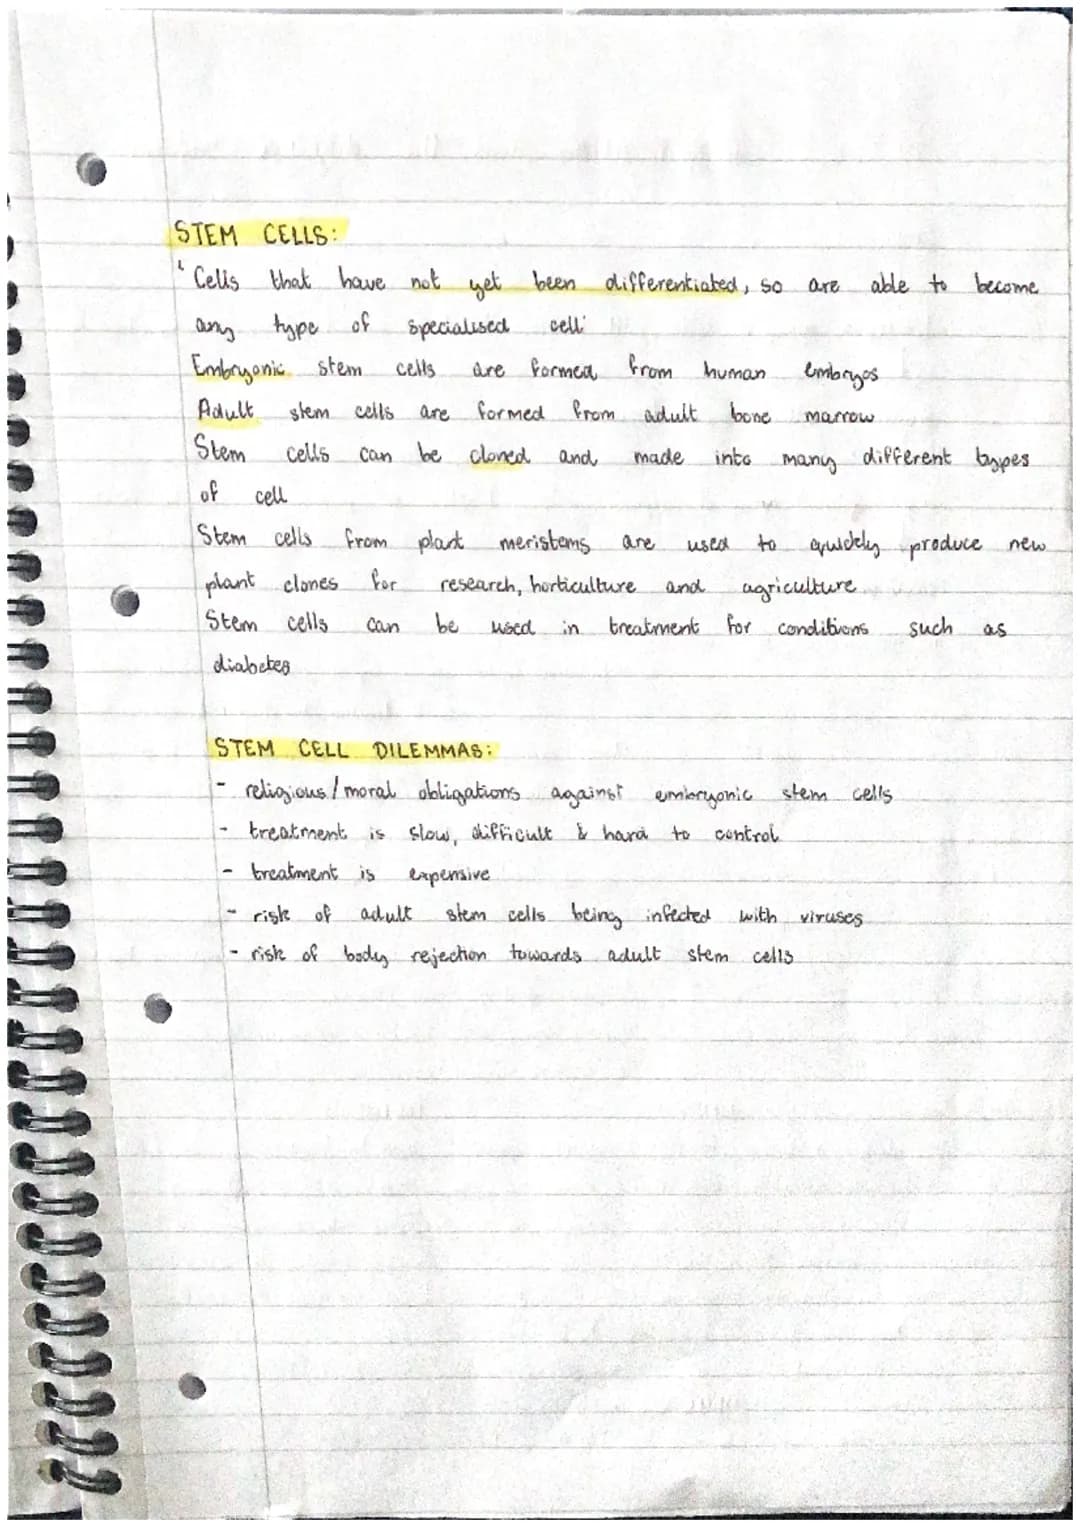 STEM CELLS:
'Cells that have not yet been differentiated, so are able to become
any type of specialised cell'
Embryonic stem cells are formed from human embryos
Adult stem cells are formed from adult bone marrow
Stem cells can be cloned and made into many different types
of cell
Stem cells from plant meristems are used to quickly produce new
plant clones for research, horticulture and agriculture
Stem cells can be used in treatment for conditions such as
diabetes
STEM CELL DILEMMAS:
- religious/moral obligations against embryonic stem cells
- treatment is slow, difficult & hard to control
- treatment is expensive
- risk of adult stem cells being infected with viruses
- risk of body rejection towards adult stem cells